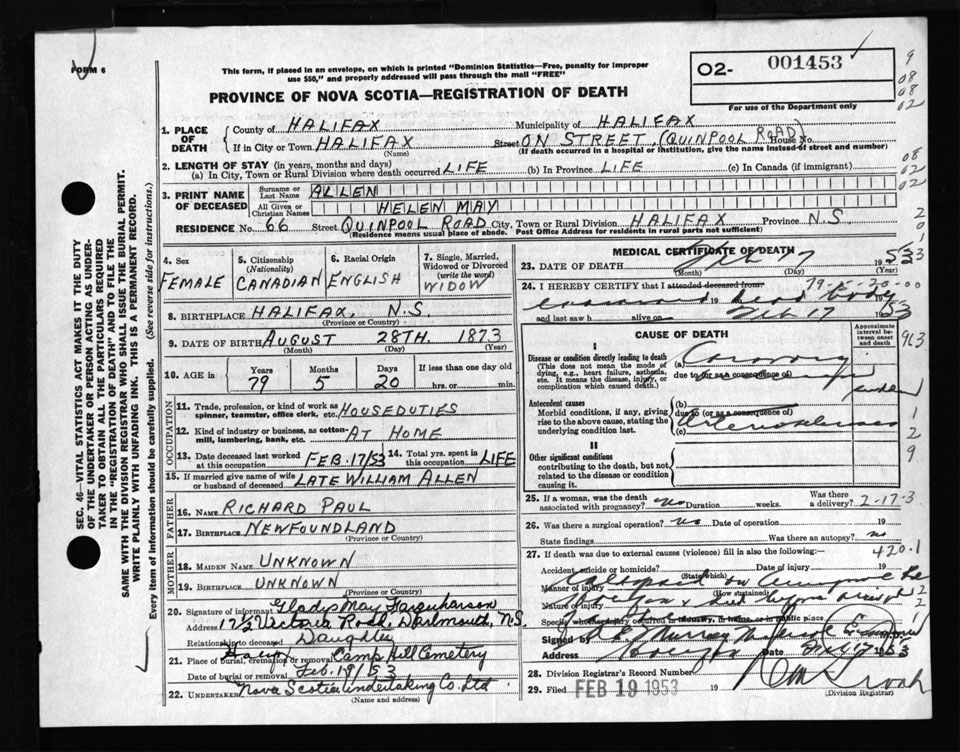 FORM 6
This form, if placed in an envelope, on which is printed "Dominion Statistics—Free, penalty for improper
use $50," and properly addressed will pass through the mail "FREE"
PROVINCE OF NOVA SCOTIA—REGISTRATION OF DEATH
O2- 001453
For use of the Department only
9
08
08
02
1. PLACE OF DEATH
County of HALIFAX Municipality of HALIFAX
If in City or Town HALIFAX Street ON STREET, (QUINPOOL ROAD) House No.
(Name) (If death occurred in a hospital or institution, give the name instead of street and number)
2. LENGTH OF STAY (in years, months and days)
(a) In City, Town or Rural Division where death occurred LIFE (b) In Province LIFE (c) In Canada (if immigrant)
08
02
02
3. PRINT NAME OF DECEASED
Surname or Last Name ALLEN
All Given or Christian Names HELEN MAY
RESIDENCE No. 66 Street QUINPOOL ROAD City, Town or Rural Division HALIFAX Province N.S.
(Residence means usual place of abode. Post Office Address for residents in rural parts not sufficient)
4. Sex FEMALE
5. Citizenship (Nationality) CANADIAN
6. Racial Origin ENGLISH
7. Single, Married, Widowed or Divorced (write the word) WIDOW
8. BIRTHPLACE HALIFAX, N.S.
(Province or Country)
9. DATE OF BIRTH AUGUST 28TH. 1873
(Month) (Day) (Year)
10. AGE in Years 79 Months 5 Days 20 If less than one day old hrs. or min.
OCCUPATION
11. Trade, profession, or kind of work as spinner, teamster, office clerk, etc. HOUSEDUTIES
12. Kind of industry or business, as cotton-mill, lumbering, bank, etc. AT HOME
13. Date deceased last worked at this occupation FEB. 17/53
14. Total yrs. spent in this occupation LIFE
15. If married give name of wife or husband of deceased LATE WILLIAM ALLEN
FATHER
16. Name RICHARD PAUL
17. Birthplace NEWFOUNDLAND
(Province or Country)
MOTHER
18. Maiden Name UNKNOWN
19. Birthplace UNKNOWN
(Province or Country)
20. Signature of informant Gladys May Farquharson
Address 17½ Victoria Road, Dartmouth, N.S.
Relationship to deceased Daughter
21. Place of burial, cremation or removal Camp Hill Cemetery
Date of burial or removal Feb. 19/53
22. Undertaker Nova Scotia Undertaking Co. Ltd
(Name and address)
MEDICAL CERTIFICATE OF DEATH
23. DATE OF DEATH Feb 17 1953
(Month) (Day) (Year)
24. I HEREBY CERTIFY that I attended deceased from:
examined dead body
and last saw h alive on Feb 17 1953
79-5-20-00
CAUSE OF DEATH
Approximate interval between onset and death
I
Disease or condition directly leading to death
(This does not mean the mode of dying, e.g., heart failure, asthenia, etc. It means the disease, injury, or complication which caused death.)
(a) Coronary
due to (or as a consequence of)
Antecedent causes
Morbid conditions, if any, giving rise to the above cause, stating the underlying condition last.
(b)
due to (or as a consequence of)
(c) Arteriosclerosis
II
Other significant conditions
contributing to the death, but not related to the disease or condition causing it.
25. If a woman, was the death associated with pregnancy? No Duration weeks. Was there a delivery? 2-17-3
26. Was there a surgical operation? No Date of operation 19
State findings Was there an autopsy? no
27. If death was due to external causes (violence) fill in also the following:—
420.1
Accident, suicide or homicide? Date of injury 19
(State which)
Manner of injury Collapsed on Quinpool Rd
(How sustained)
Nature of injury
Specify whether injury occurred in industry, in home, or in public place
Signed by Murray Medical Examiner
Address Halifax Date Feb 17 1953
28. Division Registrar's Record Number
29. Filed FEB 19 1953 19
(Division Registrar)
SEC. 46—VITAL STATISTICS ACT MAKES IT THE DUTY
OF THE UNDERTAKER OR PERSON ACTING AS UNDER-
TAKER TO OBTAIN ALL THE PARTICULARS REQUIRED
IN THE "REGISTRATION OF DEATH" AND TO FILE THE
SAME WITH THE DIVISION REGISTRAR WHO SHALL ISSUE THE BURIAL PERMIT.
WRITE PLAINLY WITH UNFADING INK. THIS IS A PERMANENT RECORD.
Every item of information should be carefully supplied. (See reverse side for instructions.)